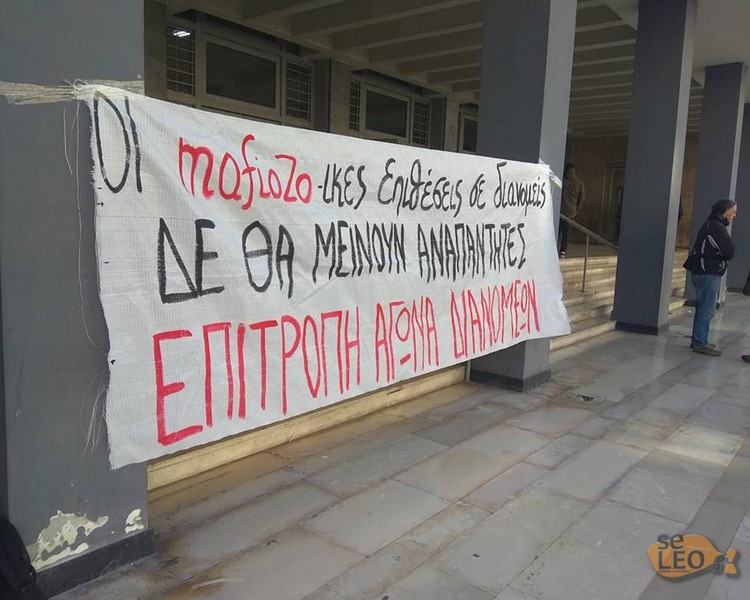 ΟΙ mafiozo-ικες επιθέσεις σε διανομείς
ΔΕ ΘΑ ΜΕΙΝΟΥΝ ΑΝΑΠΑΝΤΗΤΕΣ
ΕΠΙΤΡΟΠΗ ΑΓΩΝΑ ΔΙΑΝΟΜΕΩΝ
se
LEO